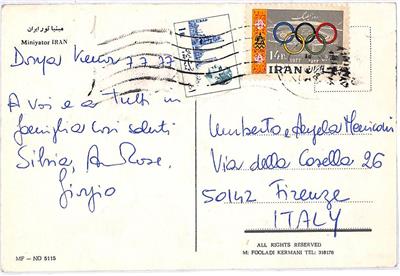 مینیاتور ایران
Miniyator IRAN
7.7.77
A voi e a tutti in
famiglia cari saluti
Silvia, Rose,
Giorgio
14 R
IRAN
Umberto e Angela
Via della Casella 26
50142 Firenze
ITALY
MF - NO 5115
ALL RIGHTS RESERVED
M: FOOLADI KERMANI TEL: 318178